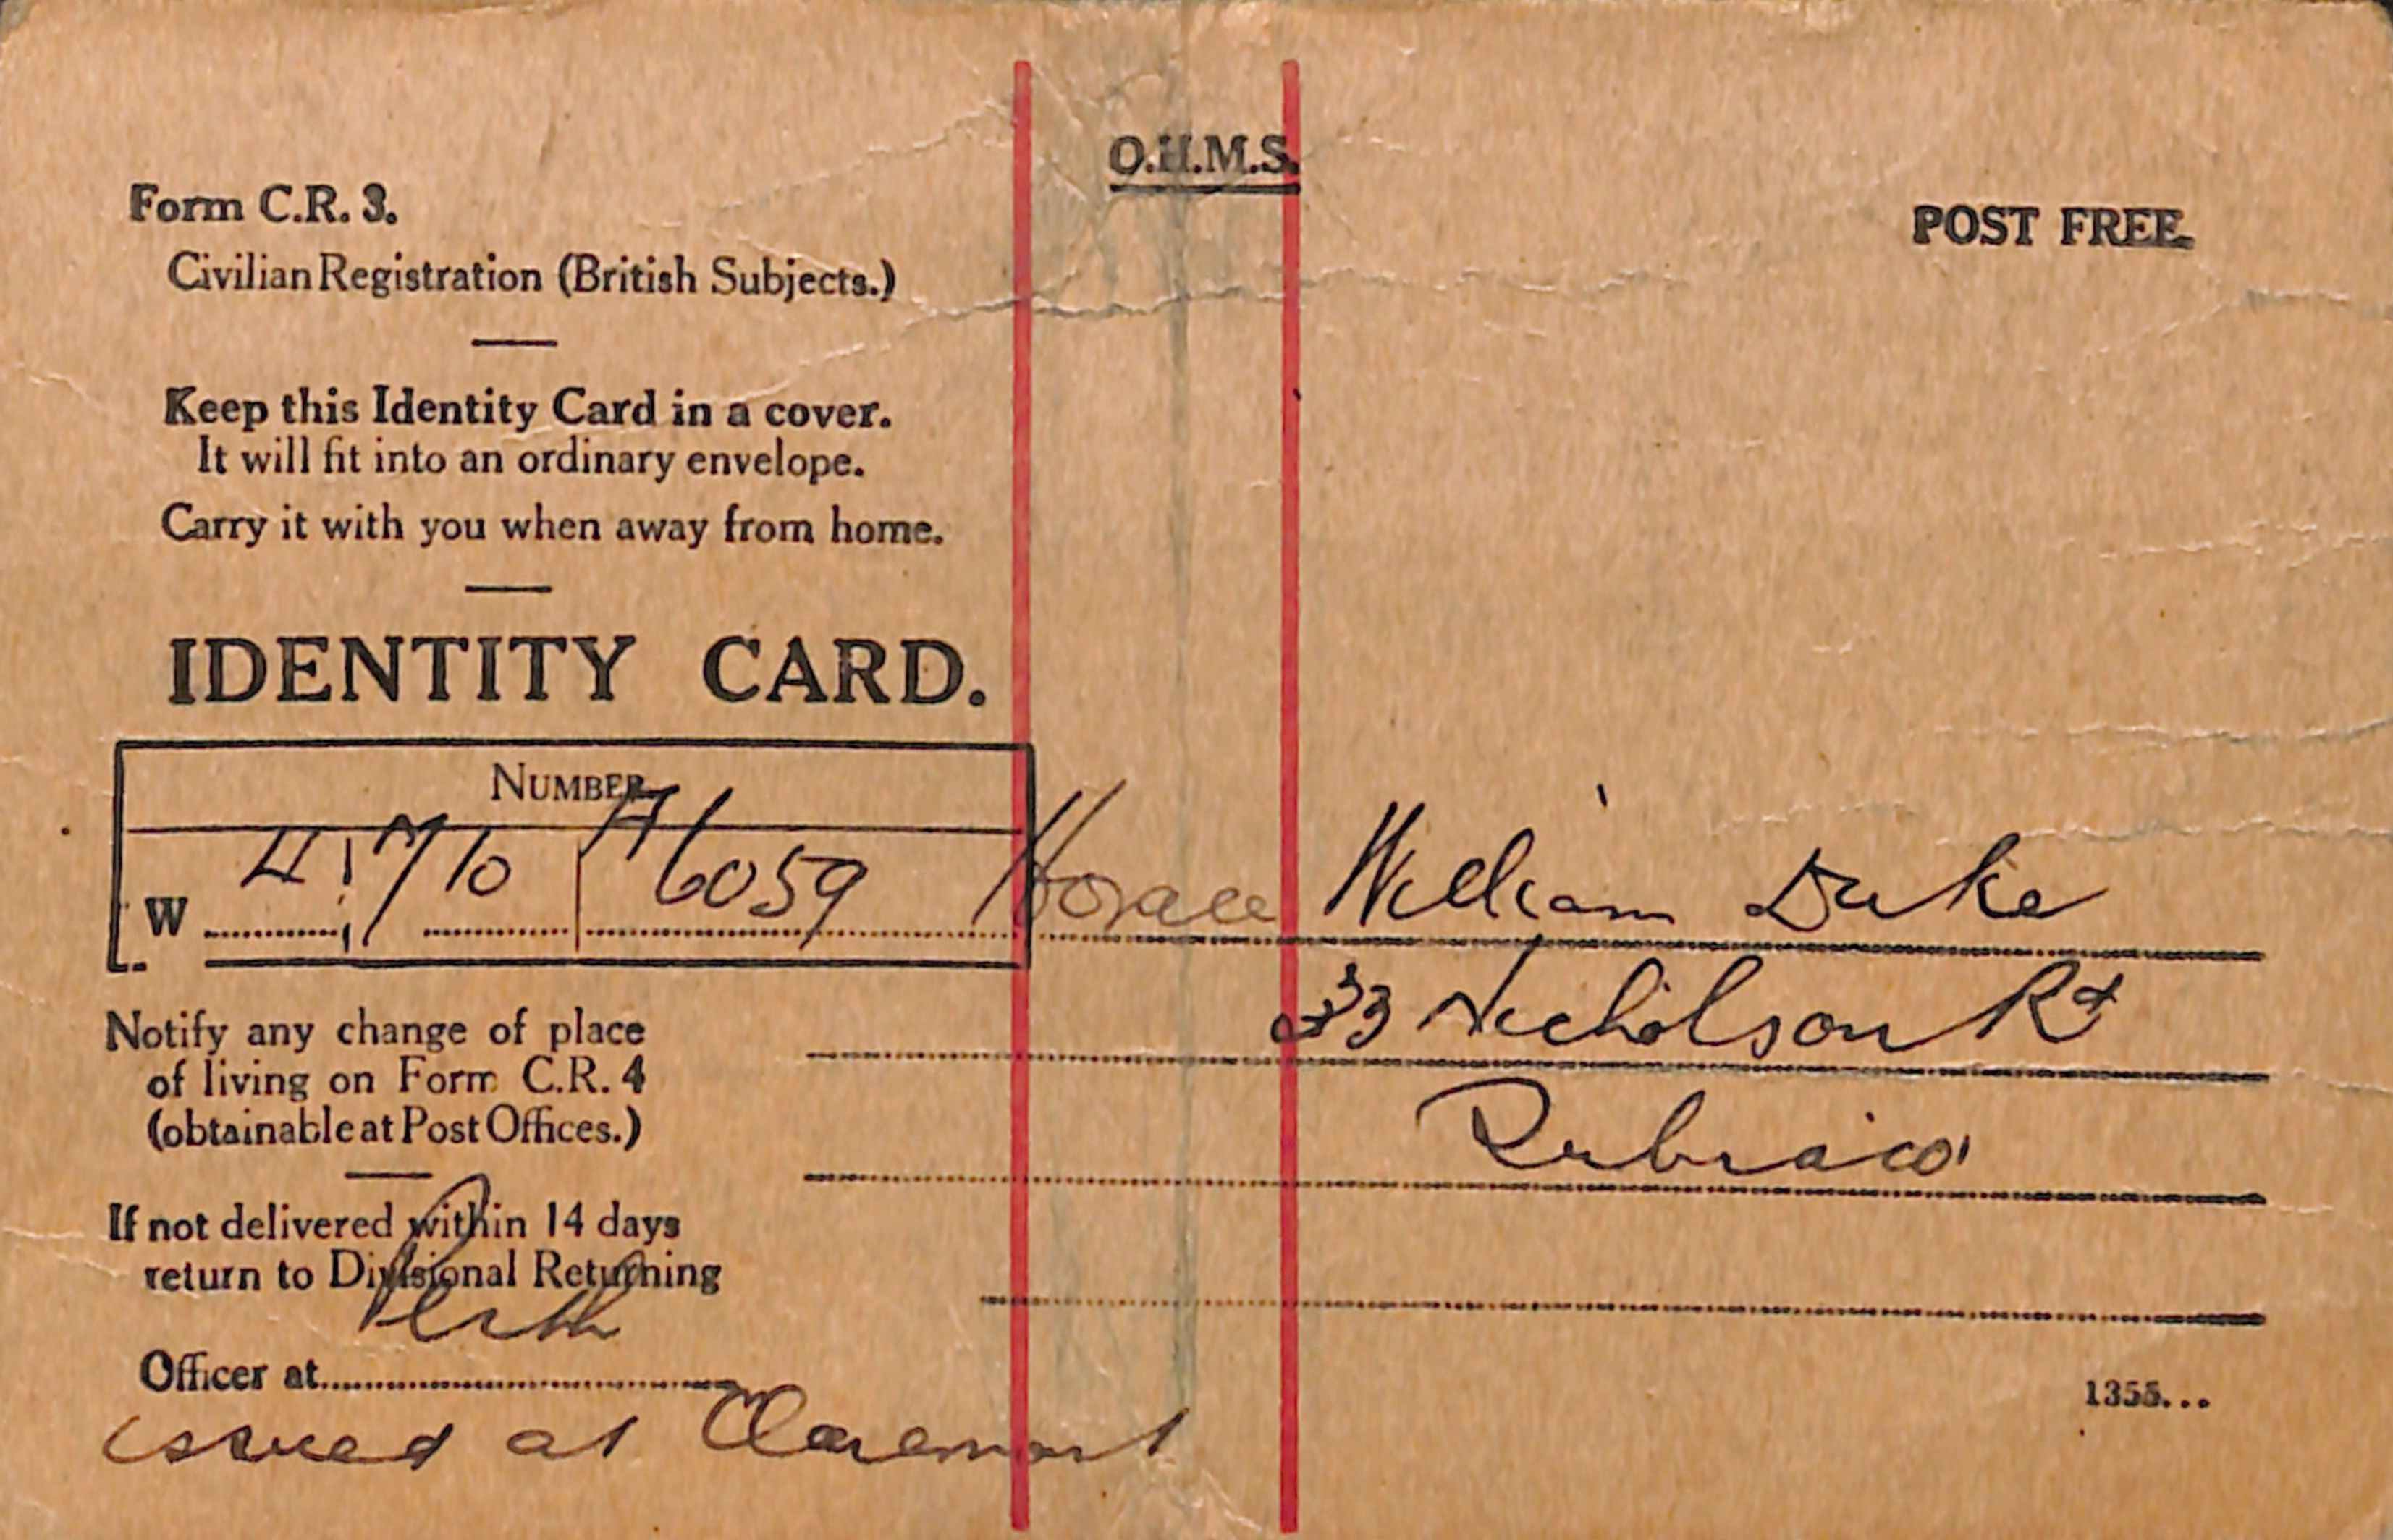 O.H.M.S.
Form C.R. 3.
POST FREE.
Civilian Registration (British Subjects.)
Keep this Identity Card in a cover.
It will fit into an ordinary envelope.
Carry it with you when away from home.
IDENTITY CARD.
NUMBER
W 6059
Horace William Duke
33 Nicholson Rd
Notify any change of place
of living on Form C.R. 4
(obtainable at Post Offices.)
Subiaco
If not delivered within 14 days
return to Divisional Returning
Perth
Officer at
1355...
issued at Claremont